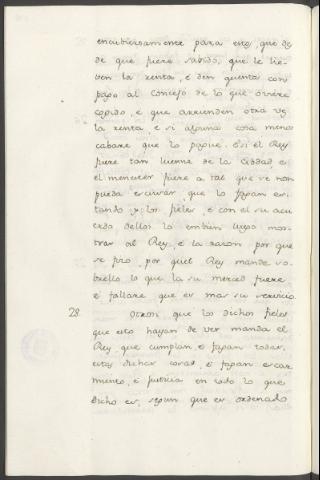 encubiersamente para esto, que des
de que fuere sabido, que le lie-
ven la renta, e den quenta con
pago al Concejo de lo que oviere
cogido, e que arrienden otra vez
la renta, e si alguna cosa menos
cabare que lo pague. E si el Rey
fuere tan luenne de la Cibdad e
el menester fuere a tal que se non
pueda escusar, que lo fagan es-
tando y los fieles, e con el su acu
erdo dellos lo embien luego mos-
trar al Rey, e la razon por que
se fizo, por quel Rey mande so-
brello lo que la su merced fuere
e fallare que es mas su servicio.
28. Otrosi, que los dichos fieles
que esto hayan de ver manda el
Rey que cumplan e fagan todas
estas dichas cosas, e fagan escar
miento, e justicia en todo lo que
dicho es, segun que es ordenado